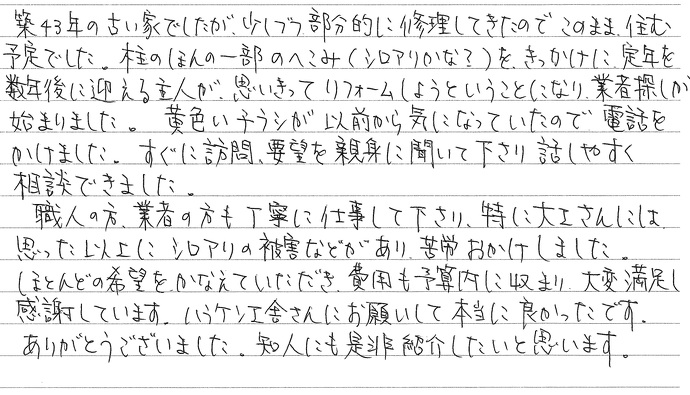 築43年の古い家でしたが、少しづつ部分的に修理してきたのでこのまま、住む
予定でした。柱のほんの一部のへこみ(シロアリかな?)を、きっかけに、定年を
数年後に迎える主人が、思いきってリフォームしようということになり、業者探しが
始まりました。 黄色いチラシが以前から気になっていたので電話を
かけました。すぐに訪問、要望を親身に聞いて下さり話しやすく
相談できました。
職人の方、業者の方も丁寧に仕事して下さり、特に大工さんには、
思った以上にシロアリの被害などがあり、苦労おかけしました。
ほとんどの希望をかなえていただき、費用も予算内に収まり、大変満足し
感謝しています。ハウケン工舎さんにお願いして本当に良かったです。
ありがとうございました。知人にも是非紹介したいと思います。